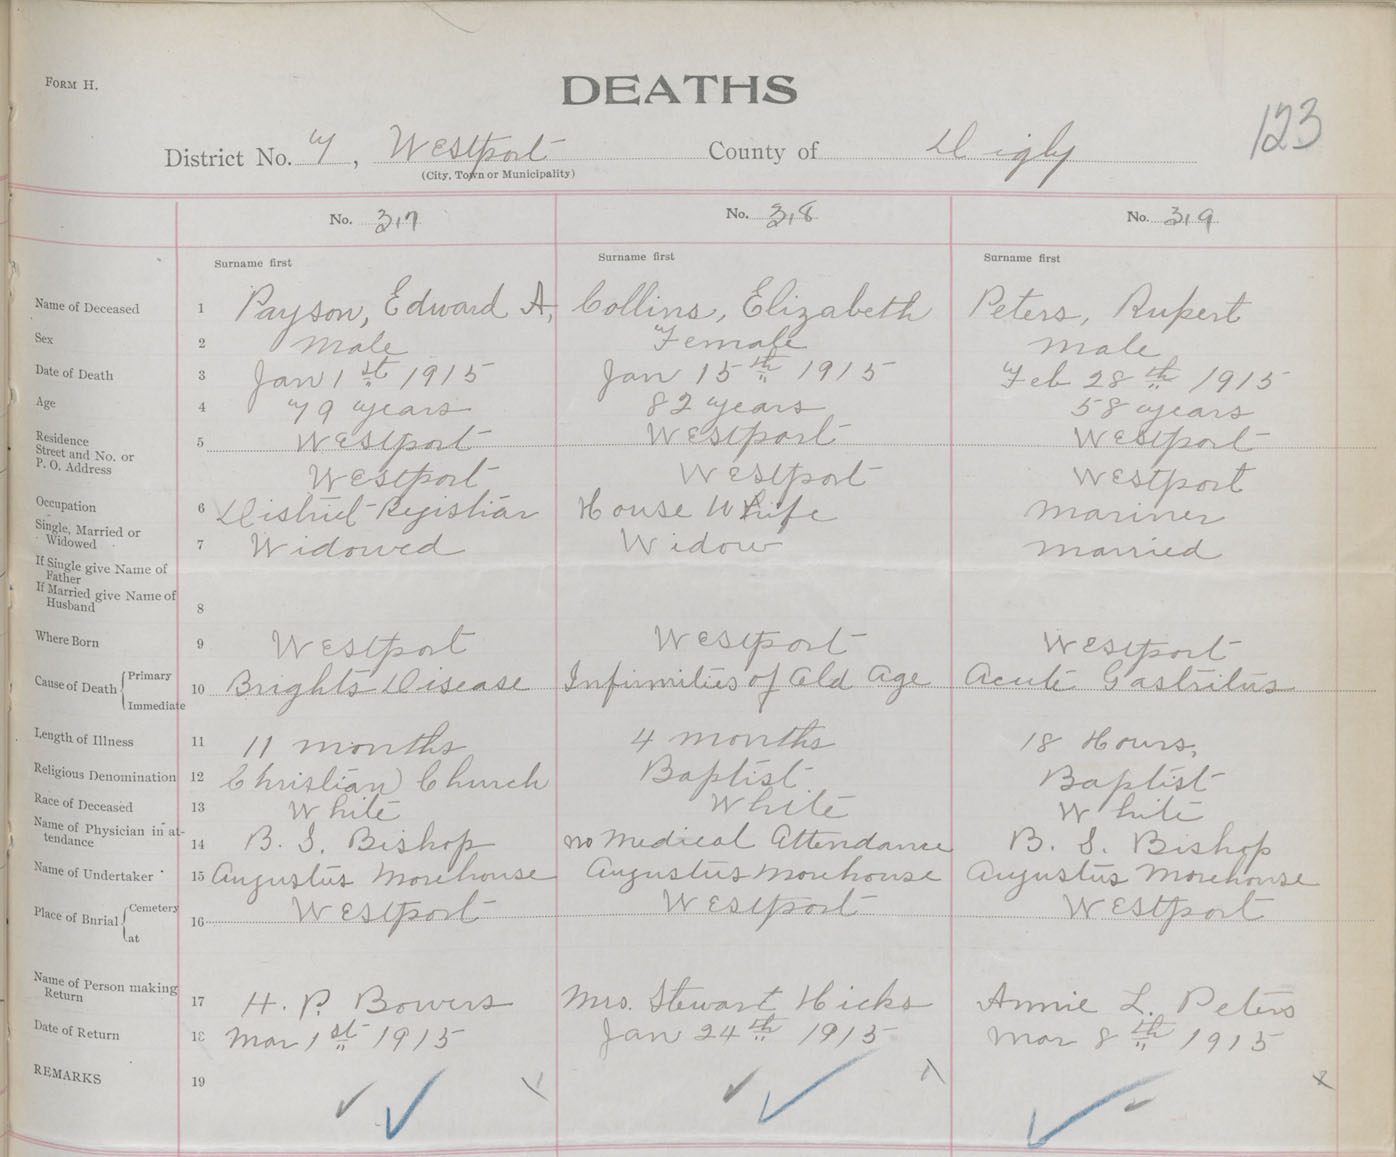 FORM H.
DEATHS
123
District No. 7, Westport County of Digby
(City, Town or Municipality)
No. 317 No. 318 No. 319
Surname first Surname first Surname first
Name of Deceased 1 Payson, Edward A, Collins, Elizabeth Peters, Rupert
Sex 2 Male Female Male
Date of Death 3 Jan 1st 1915 Jan 15th 1915 Feb 28th 1915
Age 4 79 years 82 years 58 years
Residence Street and No. or P. O. Address 5 Westport Westport Westport
Westport Westport Westport
Occupation 6 District Registrar House Wife Mariner
Single, Married or Widowed 7 Widowed Widow Married
If Single give Name of Father
If Married give Name of Husband 8
Where Born 9 Westport Westport Westport
Cause of Death Primary Immediate 10 Brights Disease Infirmities of Old Age Acute Gastritus
Length of Illness 11 11 months 4 months 18 Hours,
Religious Denomination 12 Christian Church Baptist Baptist
Race of Deceased 13 White White White
Name of Physician in attendance 14 B. S. Bishop no Medical Attendance B. S. Bishop
Name of Undertaker 15 Augustus Morehouse Augustus Morehouse Augustus Morehouse
Place of Burial Cemetery at 16 Westport Westport Westport
Name of Person making Return 17 H. P. Bowers Mrs. Stewart Hicks Annie L. Peters
Date of Return 18 Mar 1st 1915 Jan 24th 1915 Mar 8th 1915
REMARKS 19